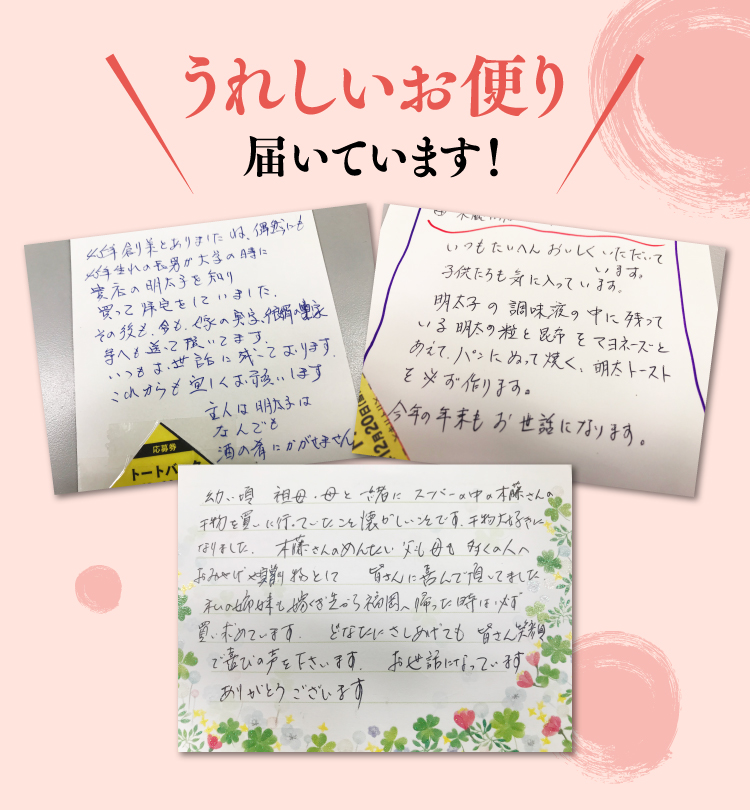 うれしいお便り
届いています!
年創業とありましたが、偶然にも
年生れの長男が大学の時に
売店の明太子を知り
買って帰宅をしていました。
その後も、今も、嫁の実家、
等へも送って頂いてます。
いつもお世話に成っております。
これからも宜しくお願いします
主人は明太子は
なんでも
酒の肴にかかせません
応募券
トートバ
いつもたいへんおいしくいただいて
います。
子供たちも気に入っています。
明太子の調味液の中に残って
いる明太の粒と昆布をマヨネーズと
あえて、パンにぬって焼く、明太トースト
を必ず作ります。
今年の年末もお世話になります。
12月20日
幼い頃 祖母・母と一緒にスーパーの中の木藤さんの
干物を買いに行っていたこと懐かしいことです。干物大好きに
なりました。 木藤さんのめんたい 父も母も多くの人へ
おみやげや贈り物として 皆さんに喜んで頂いてました
私の姉妹も嫁ぎ先から福岡へ帰った時は必ず
買い求めています。 どなたにさしあげても皆さん笑顔
で喜びの声を下さいます。 お世話になっています
ありがとうございます